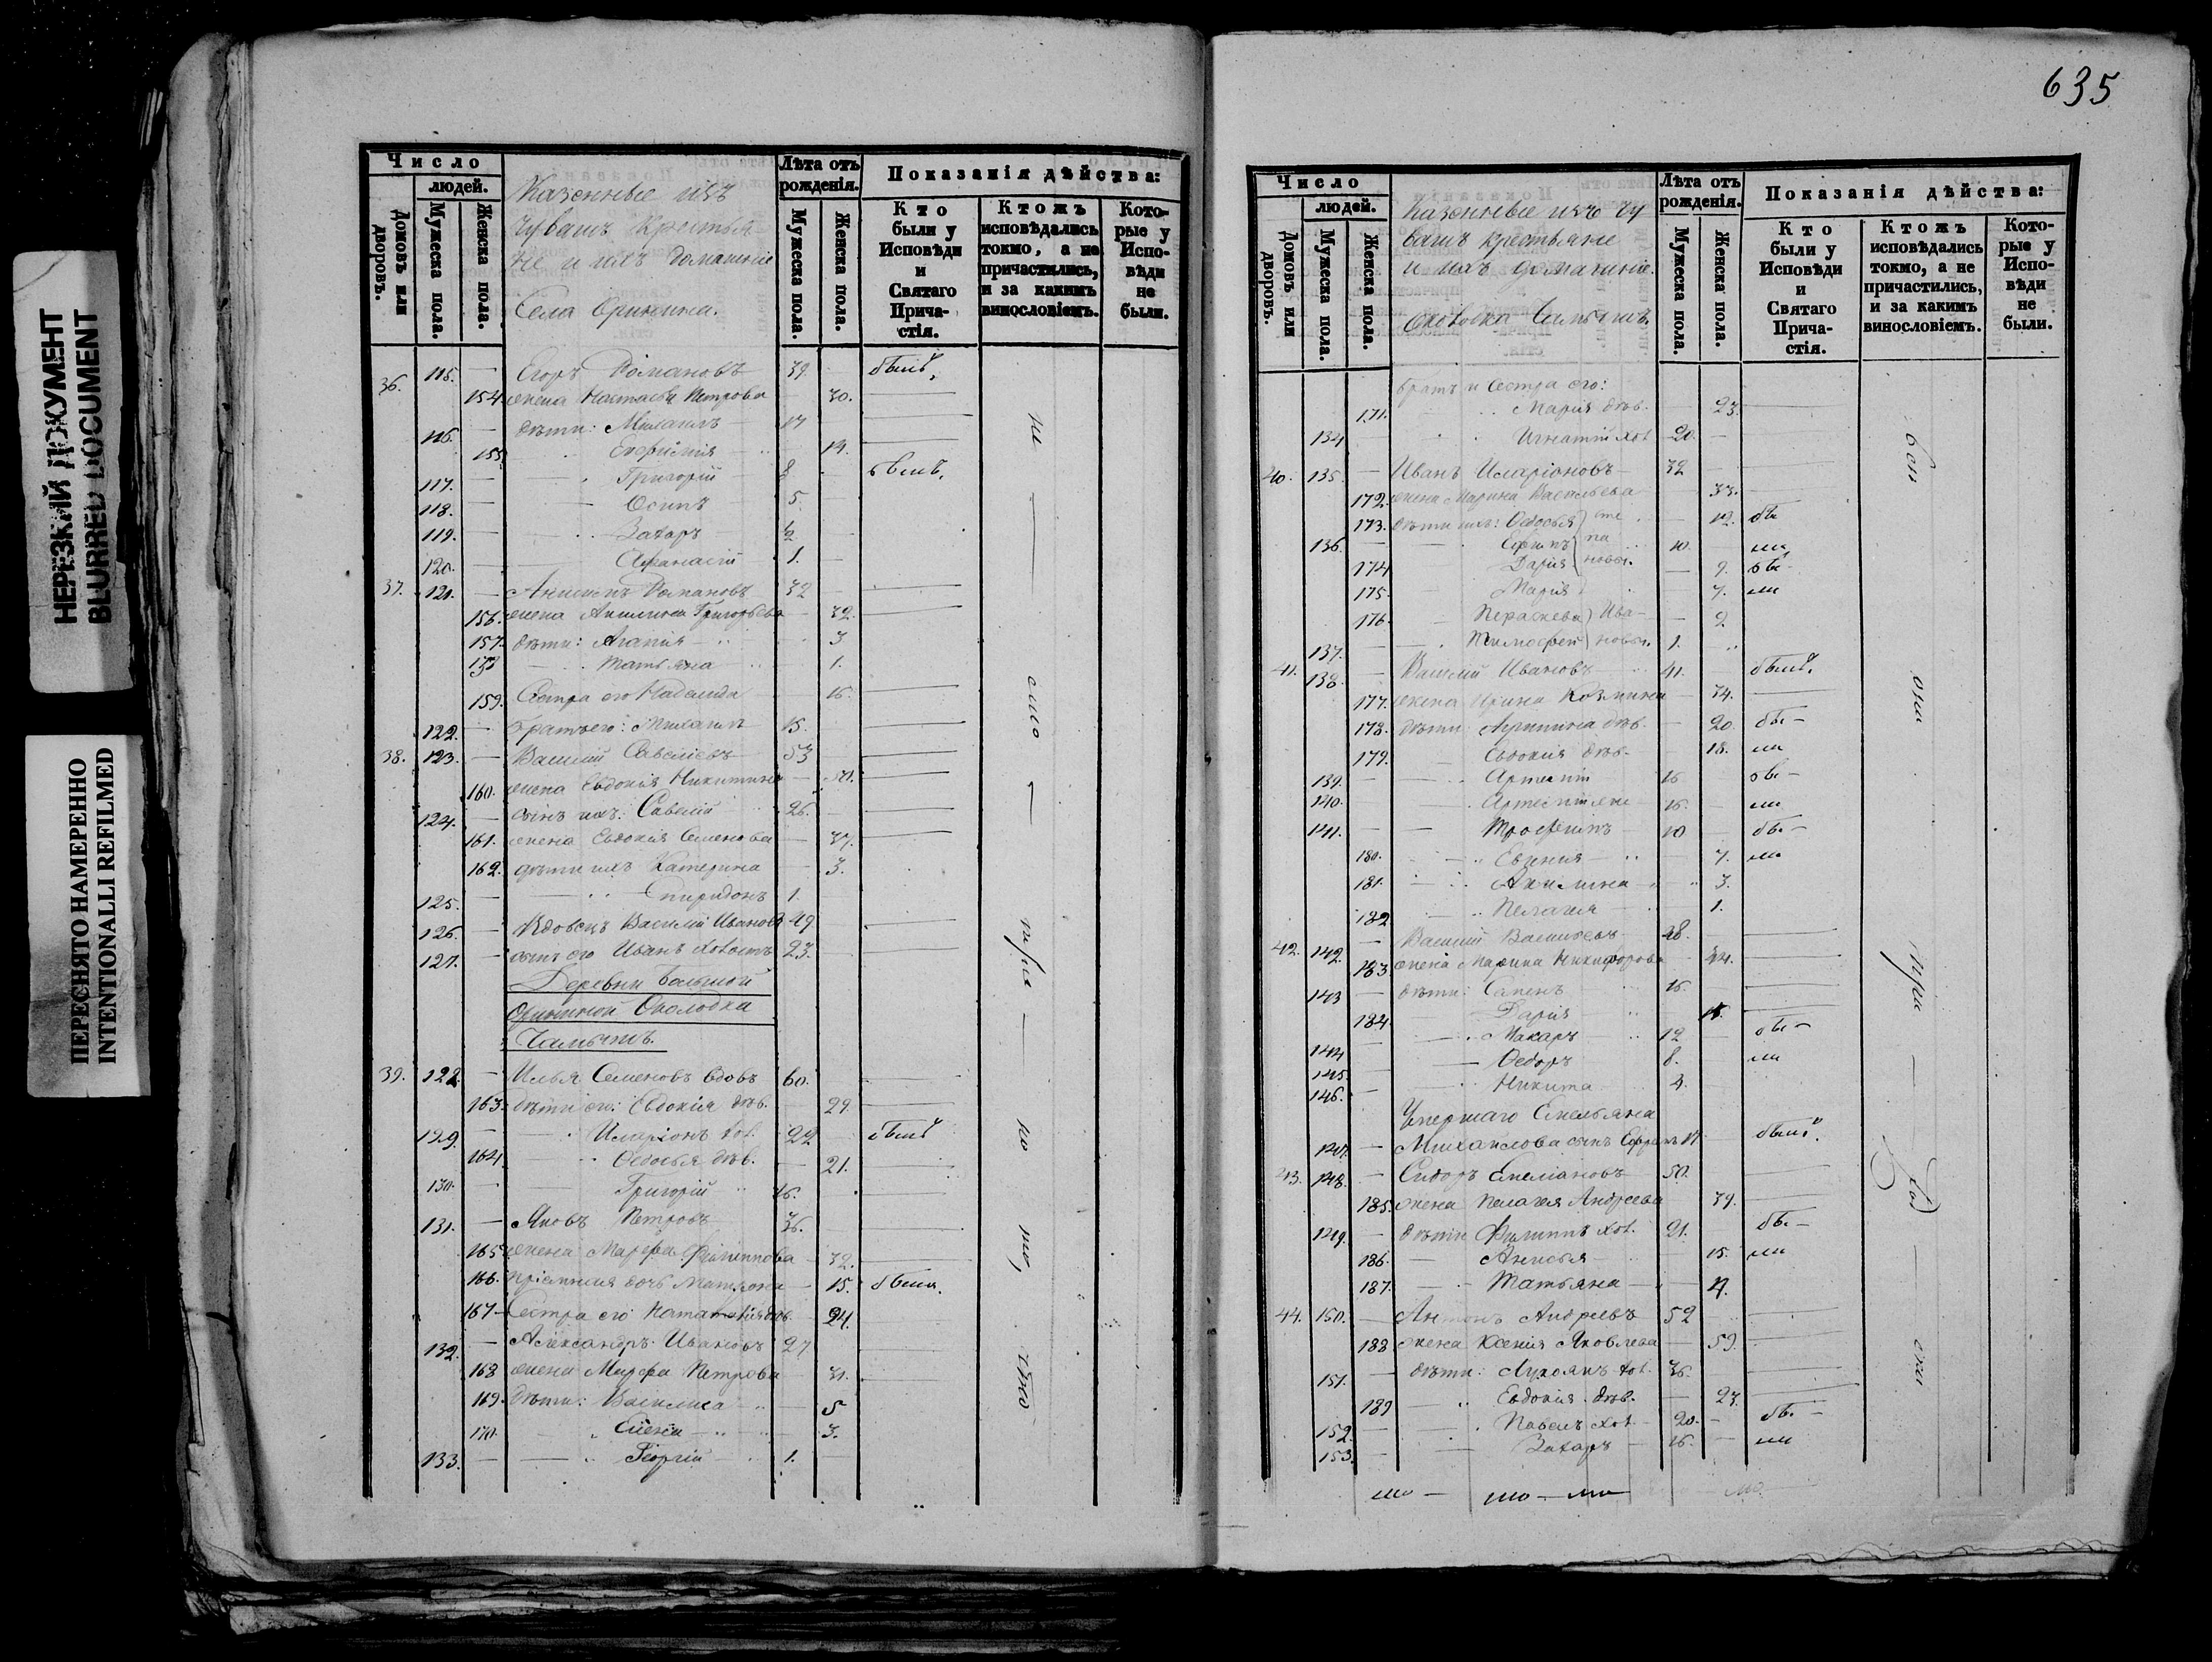 НЕРЕЗКИЙ ДОКУМЕНТ
BLURRED DOCUMENT
ПЕРЕСНЯТО НАМЕРЕННО
INTENTIONALLI REFILMED
Число
людей.
Домовъ или дворовъ.
Мужеска пола.
Женска пола.
Казенные изъ
Чувашъ Крестья
не и ихъ домашніе
Села Оринина.
Лѣта отъ рожденія.
Мужеска пола.
Женска пола.
Показанія дѣйства:
Кто были у Исповѣди и Святаго Причастія.
Ктожъ исповѣдались токмо, а не причастились, и за какимъ винословіемъ.
Которые у Исповѣди не были.
36. 115. — Егоръ Романовъ 39. — былъ,
154. жена Настасья Петрова — 30.
116. — дѣти: Михаилъ 17
155. Евфимія 14.
117. — Григорій 8 былъ.
118. — Осипъ 5.
119. — Захаръ ½
120. — Афанасій 1.
37. 121. — Анисимъ Романовъ 32
156. жена Акилина Григорьева — 32.
157. дѣти: Агапія 3
158 Татьяна 1.
159. Сестра его Надежда 16.
122. — братъ его: Михаилъ 15.
38. 123. — Василій Савельевъ 53
160. жена Евдокія Никитина — 50.
124. — сынъ ихъ: Савелій 26.
161. жена Евдокія Семенова — 37.
162. дѣти ихъ Катерина — 3.
125. — Спиридонъ 1.
126. — Вдовецъ Василій Ивановъ 49
127. — сынъ его Иванъ холостъ 23.
Деревни Большой
Орининой Околодка
Чамышъ.
39. 128. — Илья Семеновъ вдовъ 60.
163. дѣти его: Евдокія дѣв. — 29.
129. — Иларіонъ хол. 22 былъ
164. Ѳедосья дѣв. — 21.
130. — Григорій 16.
131. — Яковъ Петровъ 36.
165 жена Марфа Филиппова — 32.
166. пріемная дочь Матрона — 15. была.
167 Сестра его дѣв. — 24.
132. — Александръ Ивановъ 27
168 жена Марфа Петрова — 31.
169. дѣти: Василиса — 5
170. Елена — 3.
133. — Георгій 1.
635
Число
людей.
Домовъ или дворовъ.
Мужеска пола.
Женска пола.
Казенные изъ Чу
вашъ крестьяне
и ихъ домашніе.
Околодка Чамышъ.
Лѣта отъ рожденія.
Мужеска пола.
Женска пола.
Показанія дѣйства:
Кто были у Исповѣди и Святаго Причастія.
Ктожъ исповѣдались токмо, а не причастились, и за какимъ винословіемъ.
Которые у Исповѣди не были.
братъ и Сестра его:
171. Марія дѣв. — 23.
134 — Игнатій хол. 20. —
40. 135. — Иванъ Иларіоновъ 32
172. жена Марина Васильева — 33.
173. дѣти ихъ: Ѳедосья — 12. бы
136. — 10. ли
174 Дарія — 9. бы
175. Марія — 7. ли
176. Параскева Ива- — 2
137. — Тимофей новы. 1.
41. 138. — Василій Ивановъ 41. былъ.
177. жена Ирина Козмина — 34.
178. дѣти: дѣв. — 20. бы —
179. Евдокія дѣв. — 18. ли
139. — 16 бы —
140. — 16. — ли
141. — Трофимъ 10 бы —
180. Евгенія — 7. ли
181. Акилина 3.
182 Пелагея — 1.
42. 142. — Василій Васильевъ 38.
183. жена Марина Никифорова — 34.
143 — дѣти: 16.
184. Дарія
144 — Макаръ 12 бы —
145. — Ѳедоръ 8. ли
146. — Никита 4.
Умершаго Емельяна
147. — Михаилова сынъ 17. былъ.
43. 148. — Сидоръ Емеліановъ 50.
185. жена Пелагея Андреева 39.
149. — дѣти Филиппъ хол. 21. бы —
186. — Анисья — 15. ли
187. Татьяна — 4.
44. 150. — Антонъ Андреевъ 52
188 жена Ксенія Яковлева — 59.
151. — дѣти: Лукоянъ хол. 36.
189 Евдокія дѣв. — 23.
152. — Павелъ хол. 20. — бы —
153. — Захаръ 16. — ли